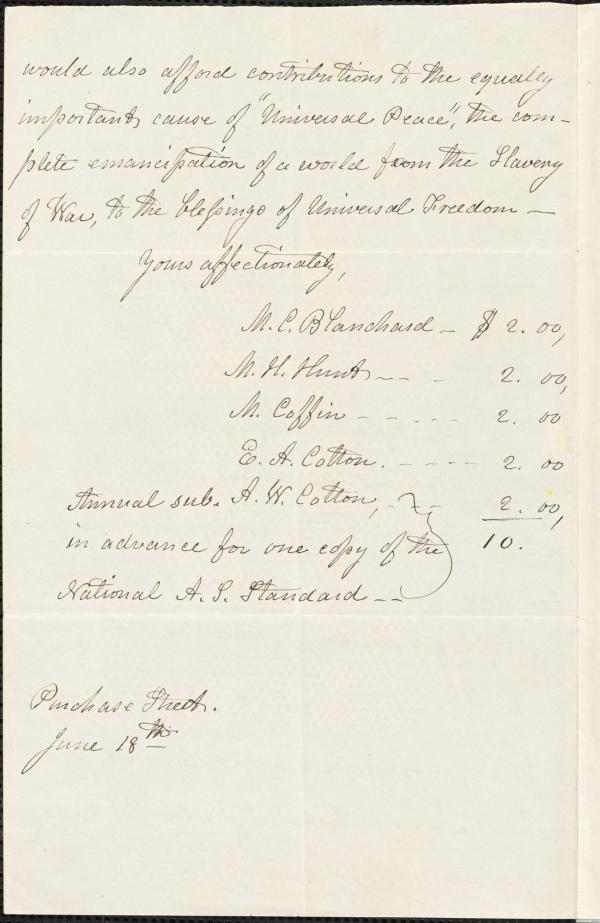 would also afford contributions to the equally
important cause of "Universal Peace", the com-
plete emancipation of a world from the Slavery
of War, to the blessings of Universal Freedom —
Yours affectionately,
M. C. Blanchard — $ 2. 00,
M. H. Hunt - - - 2. 00,
M. Coffin - - - - - 2. 00
E. A. Cotton. - - - - 2. 00
Annual sub. A. W. Cotton, - - - 2. 00,
in advance for one copy of the 10.
National A. S. Standard - -
Purchase Street.
June 18th